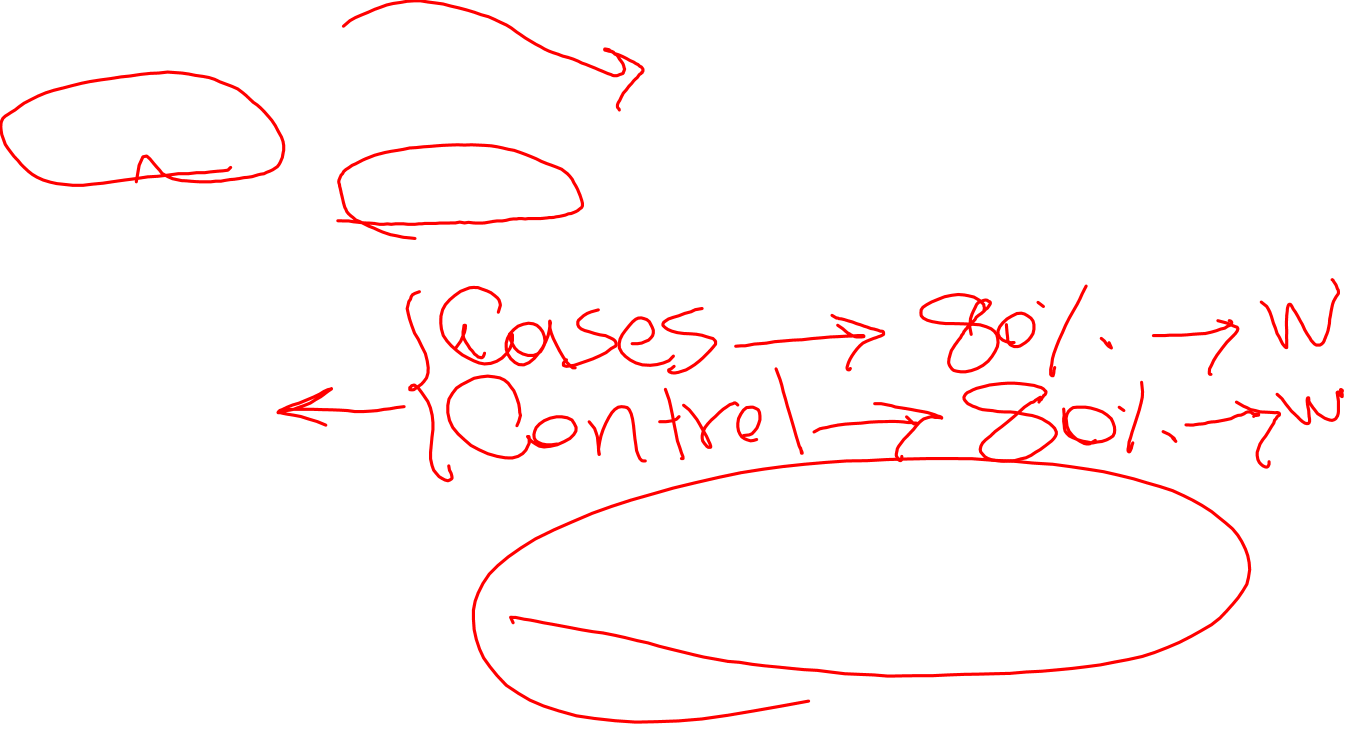 ← { Cases → 80% → W
Control → 80% → W